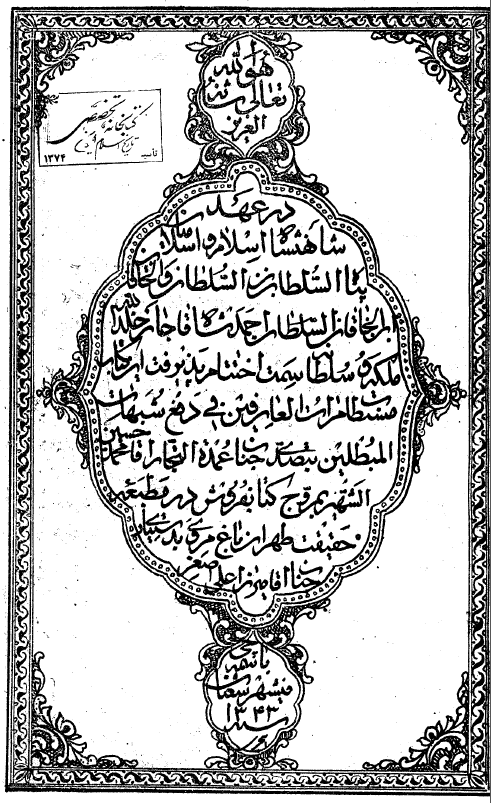 هو الله
تعالی شانه
العزیز
کتابخانه تخصصی
تاریخ اسلام و ایران
تأسیس ۱۳۷۴
در عهد
شاهنشاه اسلام و اسلامیان
پناه السلطان بن السلطان و الخاقان
ابن الخاقان السلطان احمد شاه قاجار خلد الله
ملکه و سلطانه سمت اختتام پذیرفت این کتاب
مستطاب رات العارفین فی دفع شبهات
المبطلین بتصدی جناب عمدة التجار اقا محمد حسین
الشهیر بمروج کتابفروش در
حقیقت طهران باغ مروی بدستیاری
جناب اقا میرزا علی اصغر
بانتهی
فی شهر شعبان
۱۳۴۳